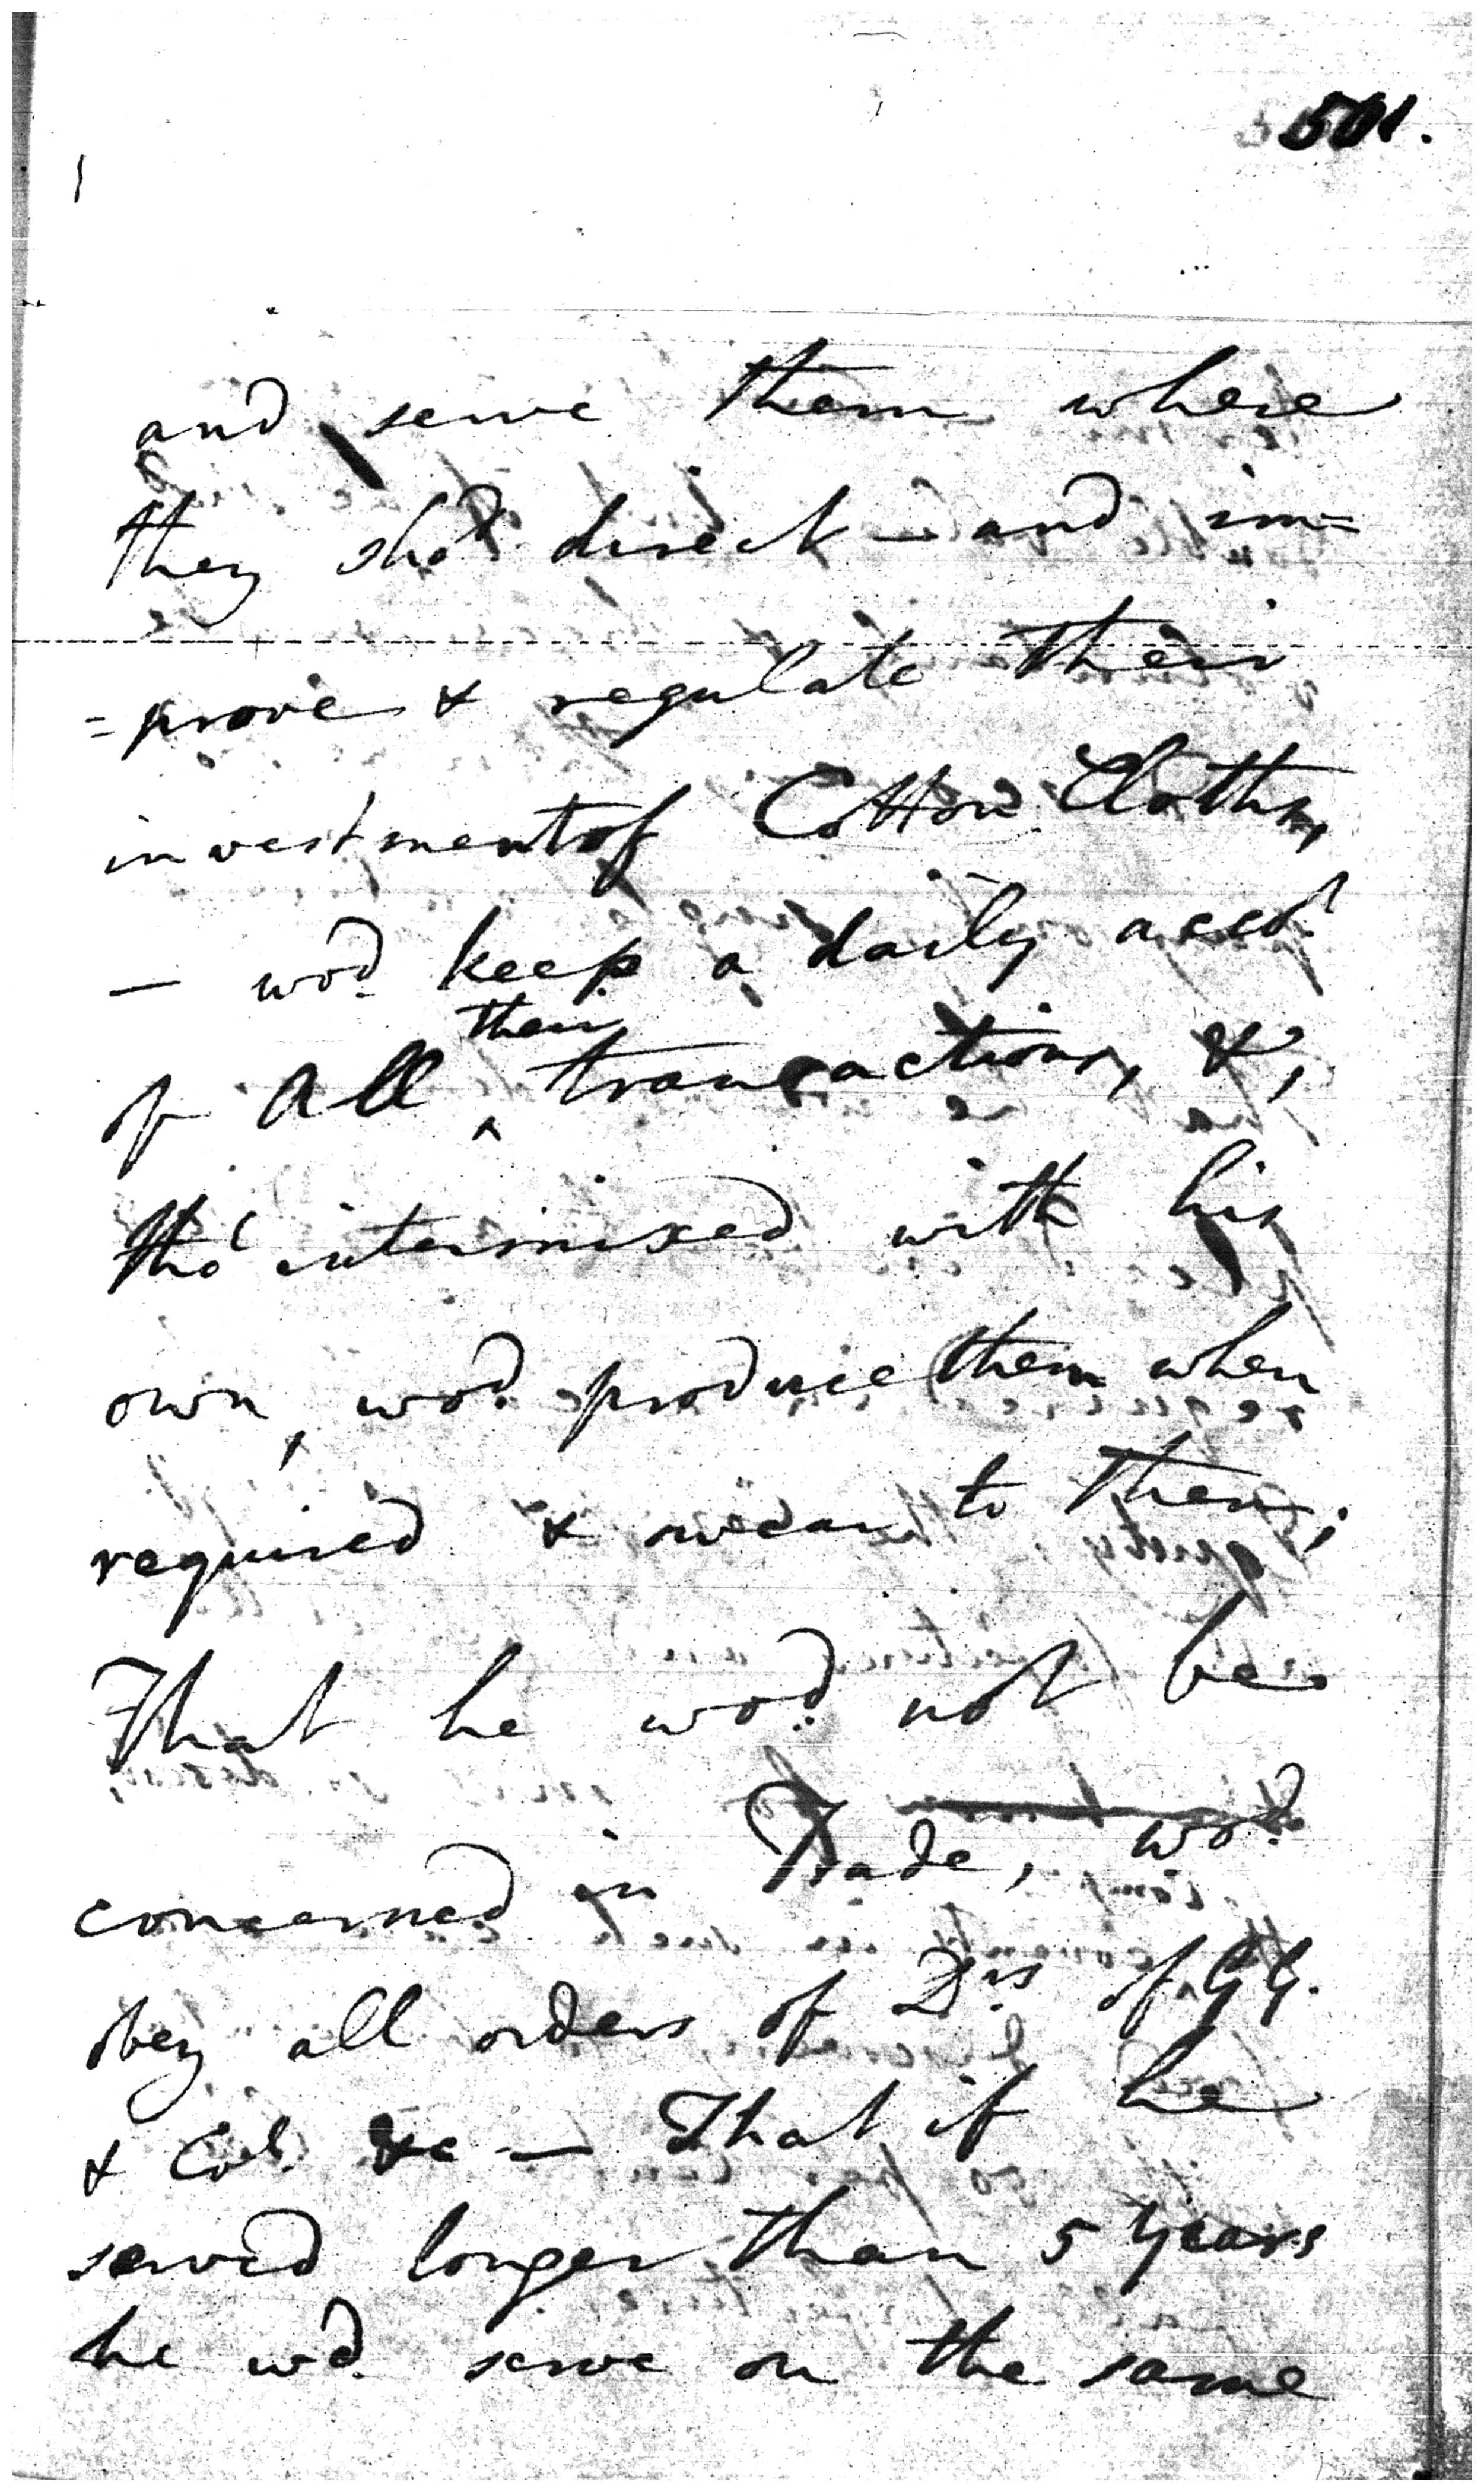 501.
and serve them where
they shod. direct — and im=
=prove & regulate their
investment of Cotton Cloths,
— wod. keep a daily accot.
of all their transactions, &,
tho' intermixed with his
own, wod. produce them when
required & swear to them;
That he wod. not be
concerned in Trade, wod.
obey all orders of Drs of GG.
& Col. &c — That if he
served longer than 5 Years
he wd. serve on the same